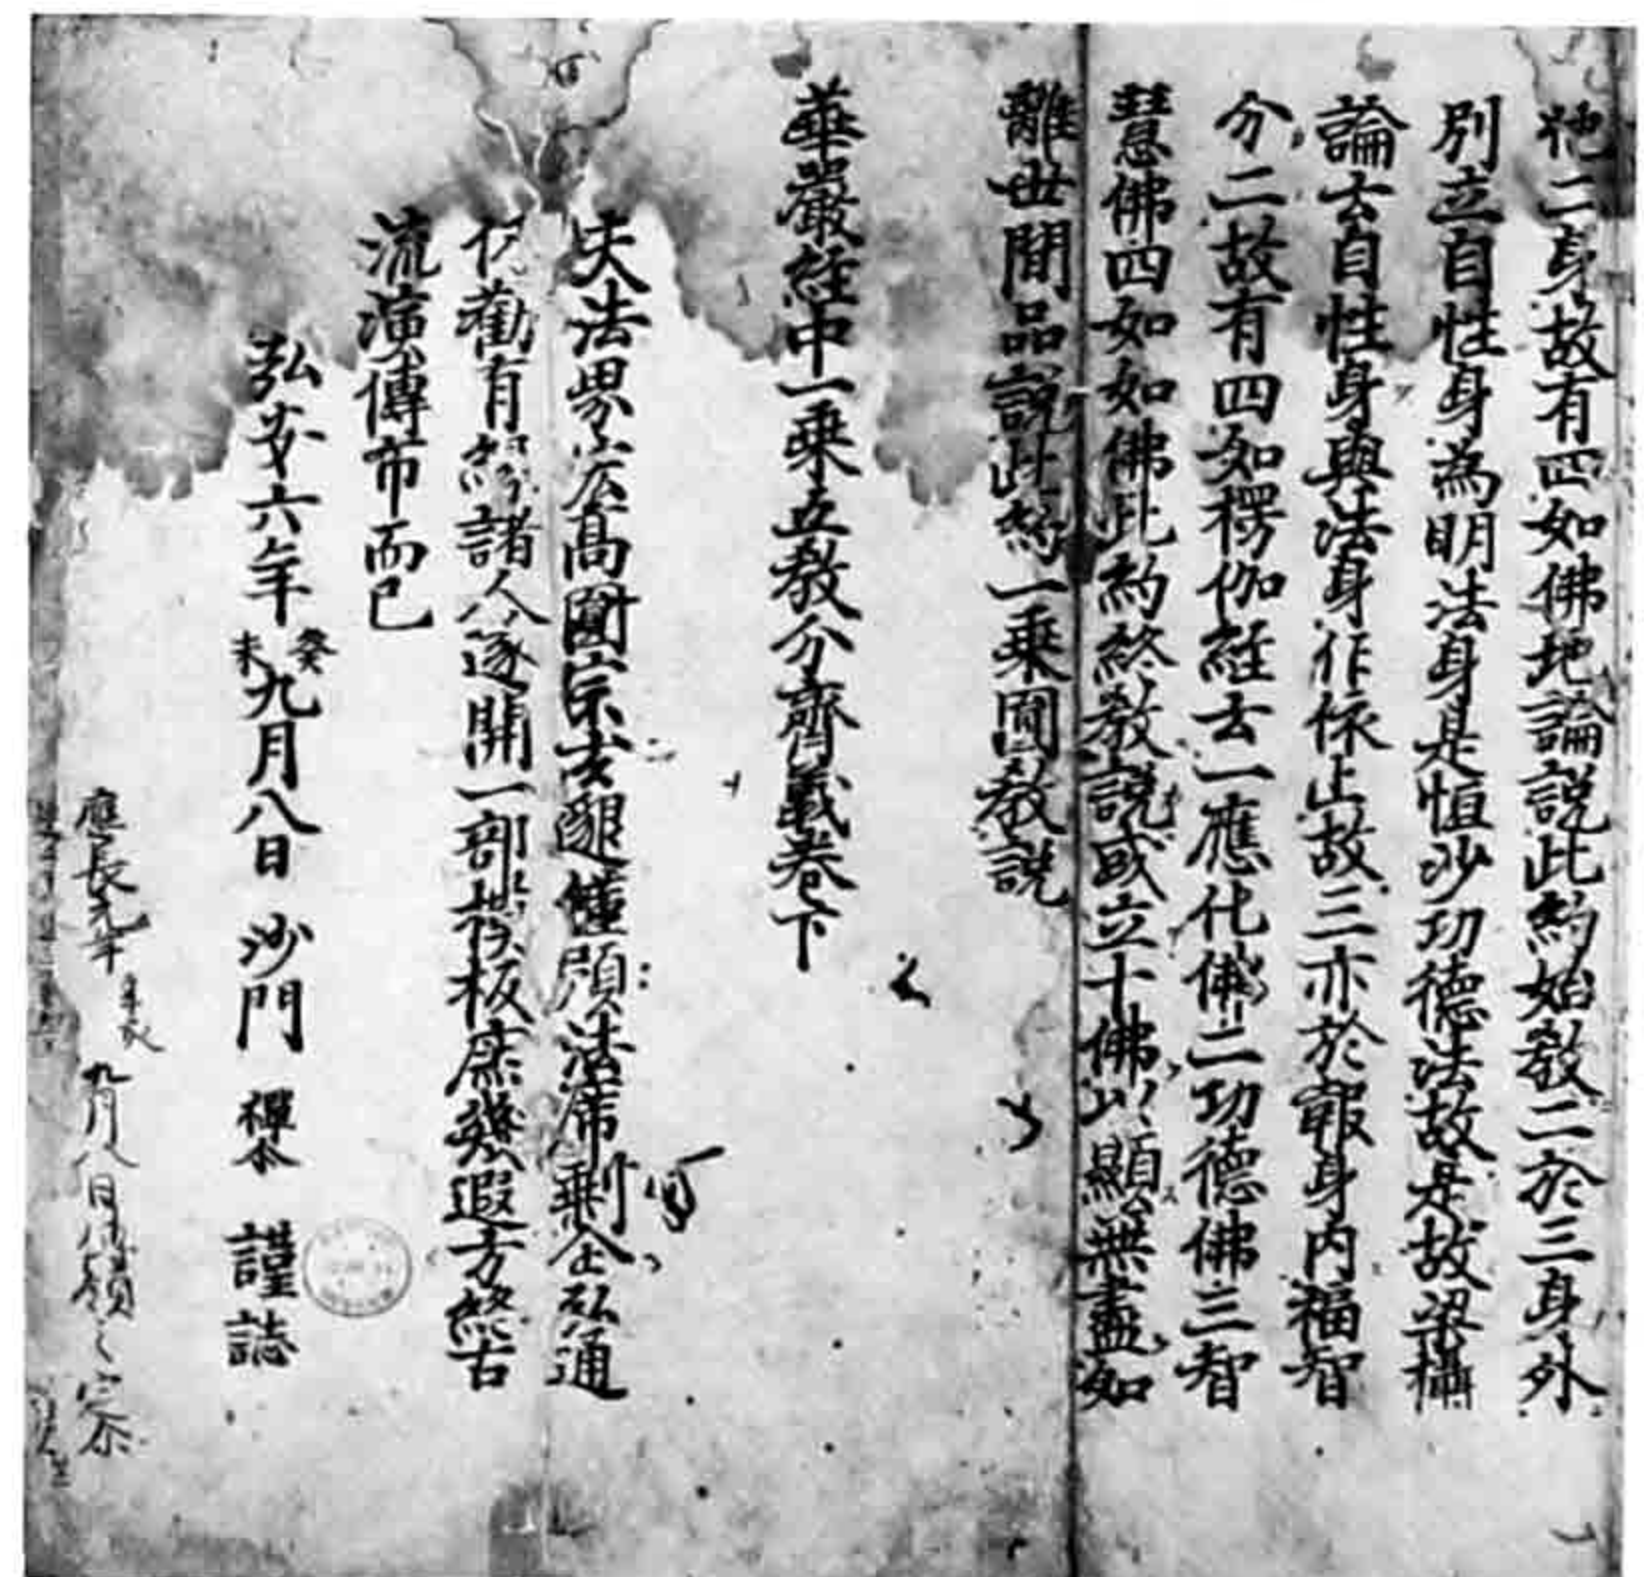 他二身故有四如佛地論説此約始教二於三身外
別立自性身為明法身是恒沙功德法故是故梁攝
論云自性身與法身作依止故三亦於報身内福智
分二故有四如楞伽經云一應化佛二功德佛三智
慧佛四如如佛此約終教説或立十佛以顯無盡如
離世間品説此約一乘圓教説
華嚴經中一乘五教分齊義卷下
夫法界宏高圓宗玄邈慬預法席剩企弘通
伏勸有緣諸人遂開一部摸板庶幾遐方終古
流演傳布而已
弘安六年癸未九月八日 沙門 禪尒 謹誌
應長元年 辛亥
九月八日